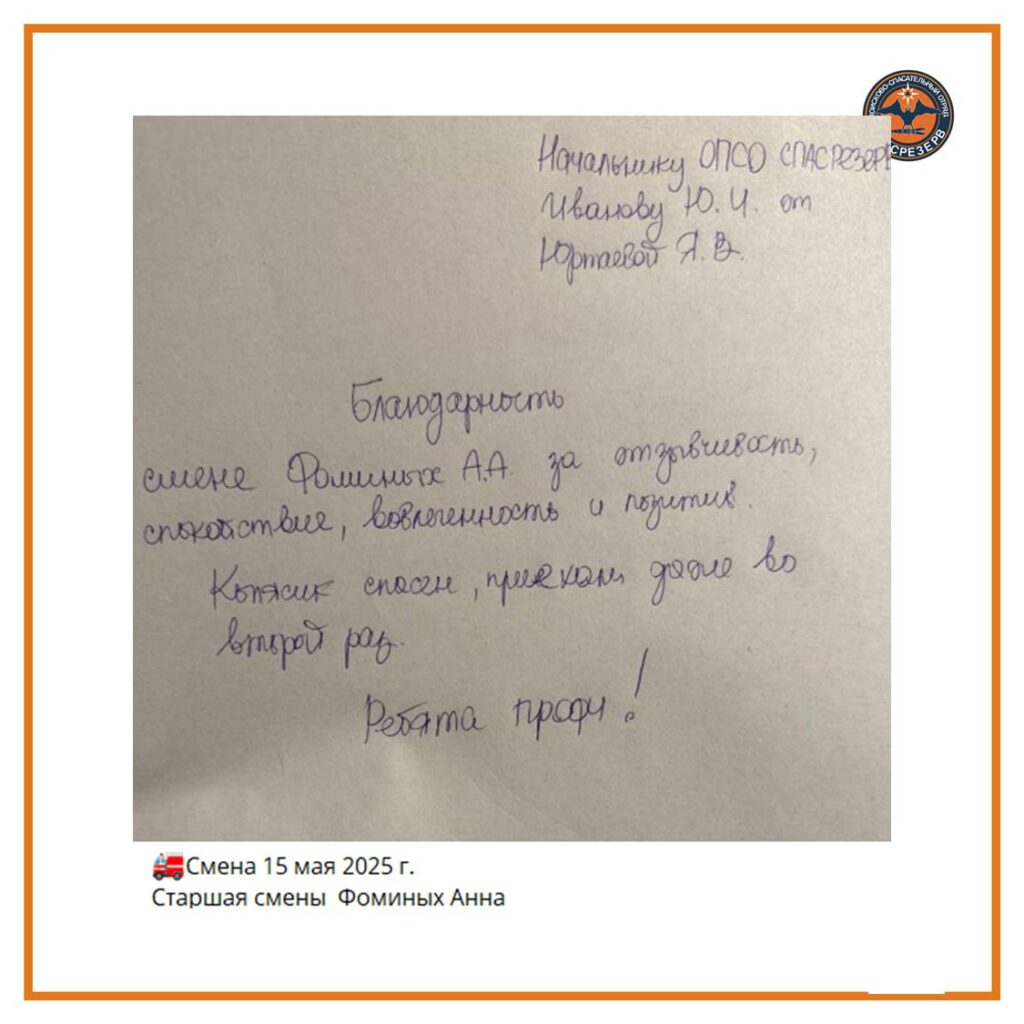 ПОИСКОВО-СПАСАТЕЛЬНЫЙ ОТРЯД
СРЕЗЕРВ
Начальнику ОПСО СПАСРЕЗЕРВ
Иванову Ю.И. от
Юртаевой Я.В.
Благодарность
смене Фоминых А.А. за отзывчивость,
спокойствие, вовлеченность и позитив.
Котясик спасен, приехали даже во
второй раз.
Ребята профи!
Смена 15 мая 2025 г.
Старшая смены Фоминых Анна